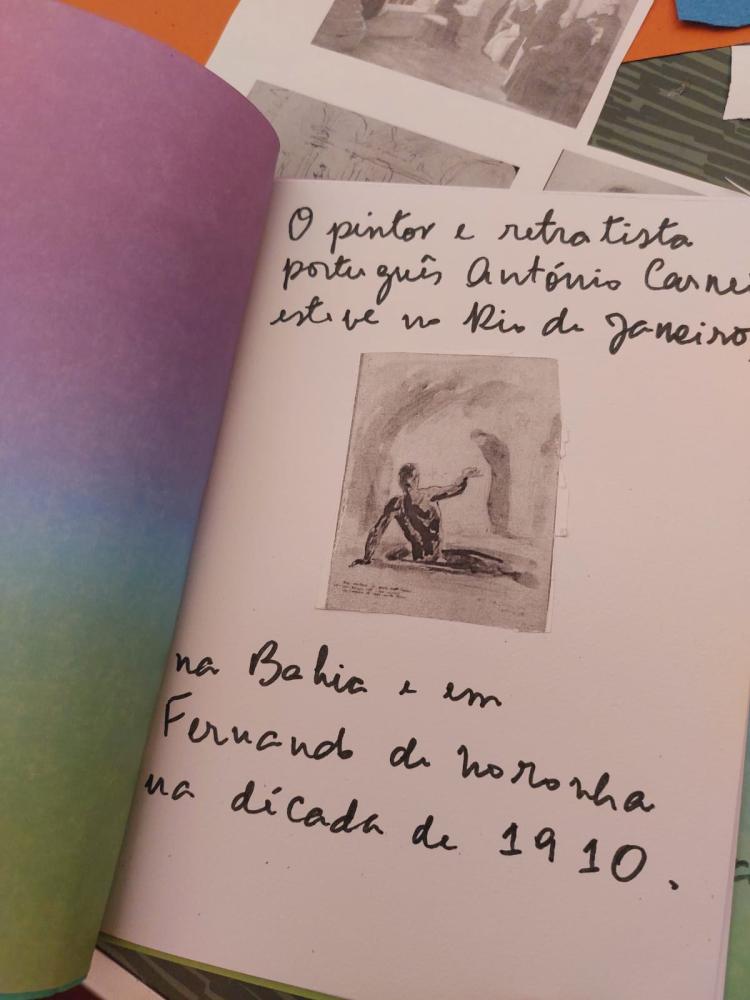 O pintor e retratista
português António Carnei
esteve no Rio de Janeiro,
na Bahia e em
Fernando de noronha
na década de 1910.